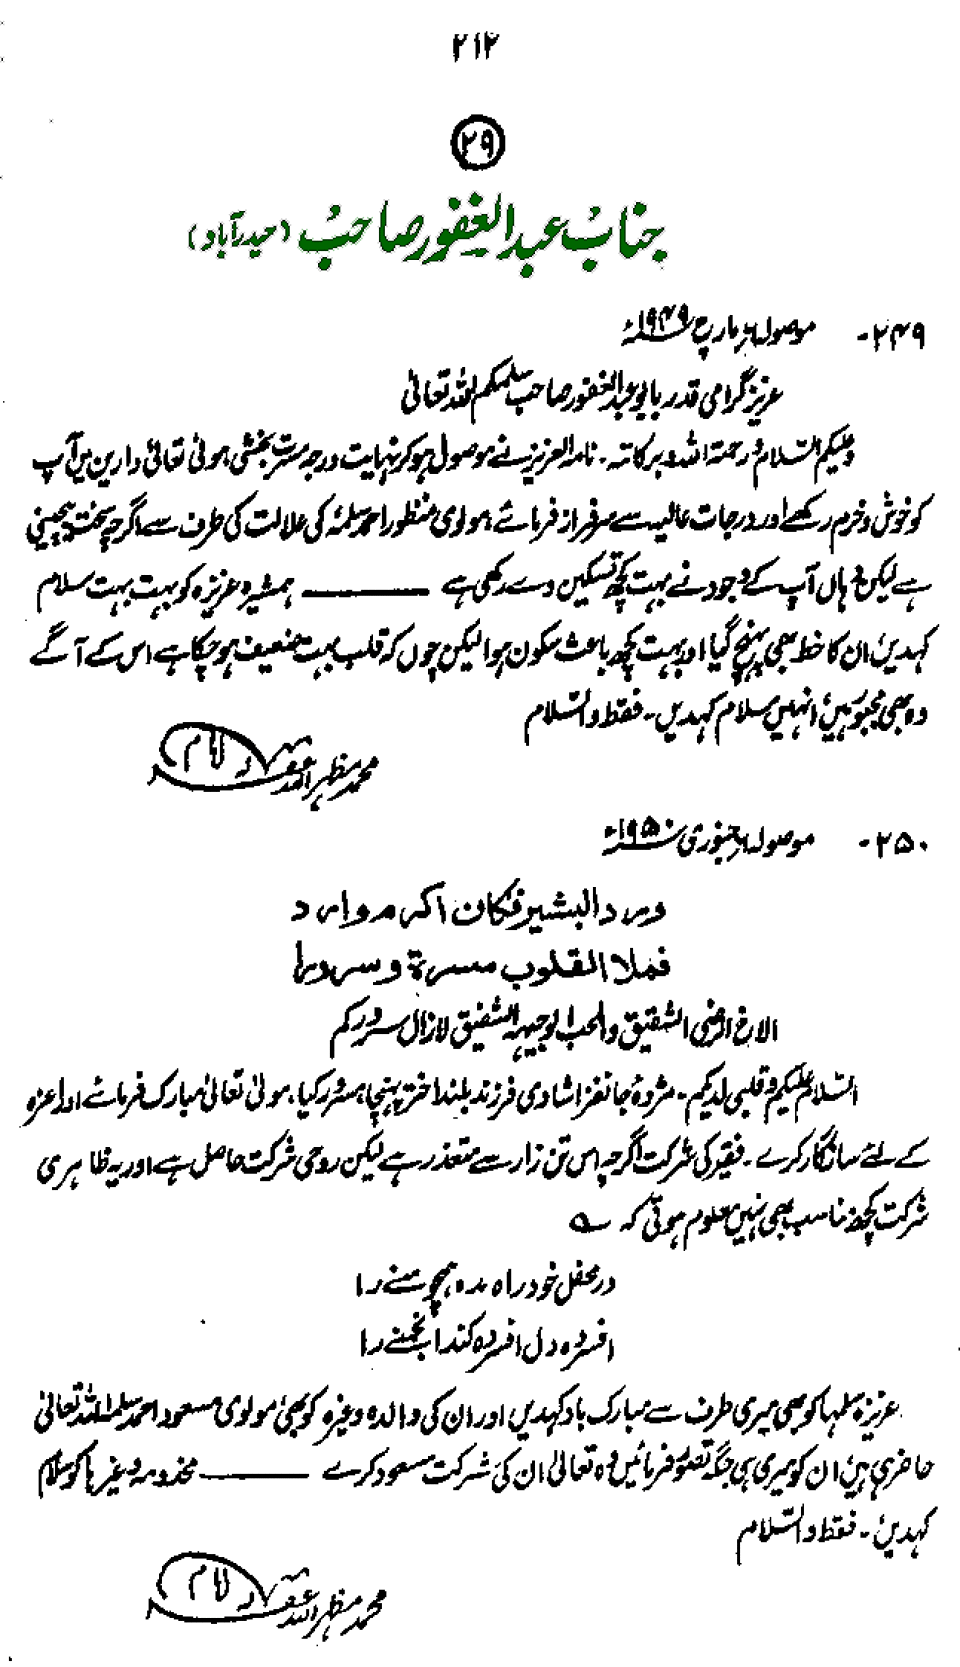 ۲۱۲
۲۹
جناب عبد الغفور صاحب (حیدرآباد)
۲۴۹- موصولہ مارچ ۱۹۴۹ء
عزیز گرامی قدر بابو عبد الغفور صاحب سلمکم اللہ تعالیٰ
وعلیکم السلام ورحمۃ اللہ وبرکاتہ۔ نامۃ العزیز نے موصول ہو کر نہایت درجہ مسرت بخشی، مولیٰ تعالیٰ دارین میں آپ
کو خوش و خرم رکھے اور درجات عالیہ سے سرفراز فرمائے، مولوی منظور احمد سلمہٗ کی علالت کی طرف سے اگرچہ سخت بیچینی
ہے لیکن وہاں آپ کے وجود نے بہت کچھ تسکین دے رکھی ہے ——— ہمشیرہ عزیزہ کو بہت بہت سلام
کہدیں، ان کا خط بھی پہنچ گیا اور بہت کچھ باعث سکون ہوا لیکن چوں کہ قلب بہت ضعیف ہو چکا ہے اس کے آگے
وہ بھی مجبور ہیں، انہیں سلام کہدیں۔ فقط والسلام
محمد مظہر اللہ غفرلہ
۲۵۰- موصولہ جنوری ۱۹۵۰ء
ورد البشیر فکان اکرم وارد
فملا القلوب مسرۃ وسرورا
الاخ الرضی الشقیق والحب الوجیہ الشفیق لازال سرورکم
السلام علیکم وقلبی لدیکم۔ مژدۂ جانفزا شادی فرزند بلند اختر پہنچا، مسرور کیا، مولیٰ تعالیٰ مبارک فرمائے اور اعزہ
کے لئے سازگار کرے۔ فقیر کی شرکت اگرچہ اس تن زار سے متعذر ہے لیکن روحی شرکت حاصل ہے اور یہ ظاہری
شرکت کچھ مناسب بھی نہیں معلوم ہوتی کہ ؎
در محفل خود راہ مدہ ہمچو منے را
افسردہ دل افسردہ کند انجمنے را
عزیزہ سلمہا کو بھی میری طرف سے مبارک باد کہدیں اور ان کی والدہ وغیرہ کو بھی، مولوی مسعود احمد سلمہ اللہ تعالیٰ
حاضر ہی ہیں، ان کو میری ہی جگہ تصور فرمائیں، وہ تعالیٰ ان کی شرکت مسعود کرے ——— مخدومہ وغیرہا کو سلام
کہدیں۔ فقط والسلام
محمد مظہر اللہ غفرلہ